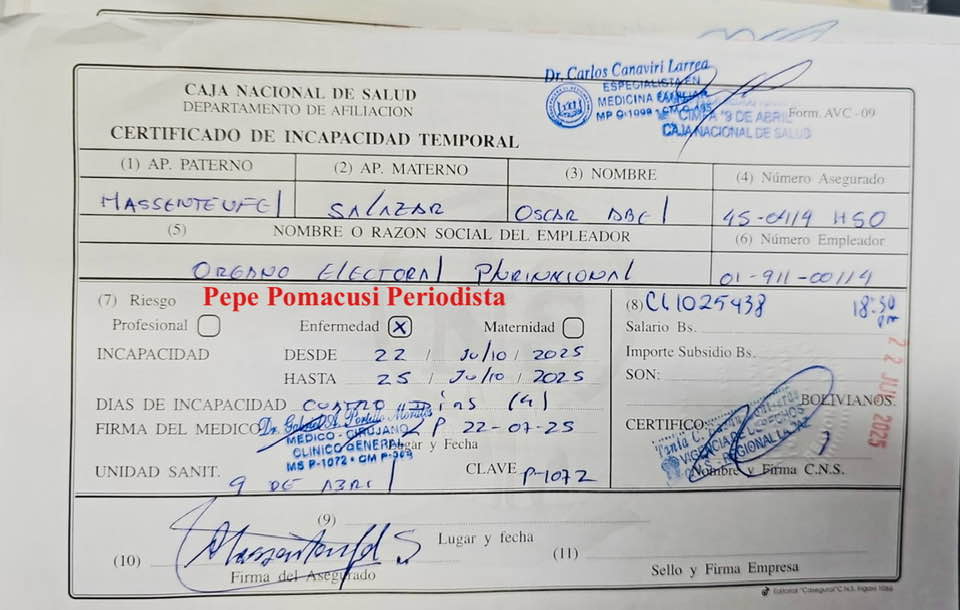 Dr. Carlos Canaviri Larrea
ESPECIALISTA EN
MEDICINA FAMILIAR
CIMFA "9 DE ABRIL"
CAJA NACIONAL DE SALUD
Form. AVC - 09
CAJA NACIONAL DE SALUD
DEPARTAMENTO DE AFILIACION
CERTIFICADO DE INCAPACIDAD TEMPORAL
(1) AP. PATERNO (2) AP. MATERNO (3) NOMBRE (4) Número Asegurado
MASSENTEUFEl SALAZAR OSCAR ABEl 45-0419 HSO
(5) NOMBRE O RAZON SOCIAL DEL EMPLEADOR (6) Número Empleador
ORGANO ELECTORAl PluRINACIONAl 01-911-00114
(7) Riesgo Pepe Pomacusi Periodista (8) 18:30 pm
Profesional Enfermedad X Maternidad Salario Bs.
INCAPACIDAD DESDE 22 / Julio / 2025 Importe Subsidio Bs.
HASTA 25 / Julio / 2025 SON:
22 JUL 2025
DIAS DE INCAPACIDAD CUATRO Dias (4) BOLIVIANOS.
FIRMA DEL MEDICO LP 22-07-25 CERTIFICO:
Dr. Gabriel A. Portillo Morales
MEDICO - CIRUJANO
CLINICO GENERAL
MS P-1072 - CM P-
Lugar y Fecha
VIGENCIA DE DERECHOS
C.N.S. - REGIONAL LA PAZ
Nombre y Firma C.N.S.
UNIDAD SANIT. 9 DE ABRIl CLAVE P-1072
(9)
Lugar y fecha
Massenteufel S
(10) Firma del Asegurado (11) Sello y Firma Empresa